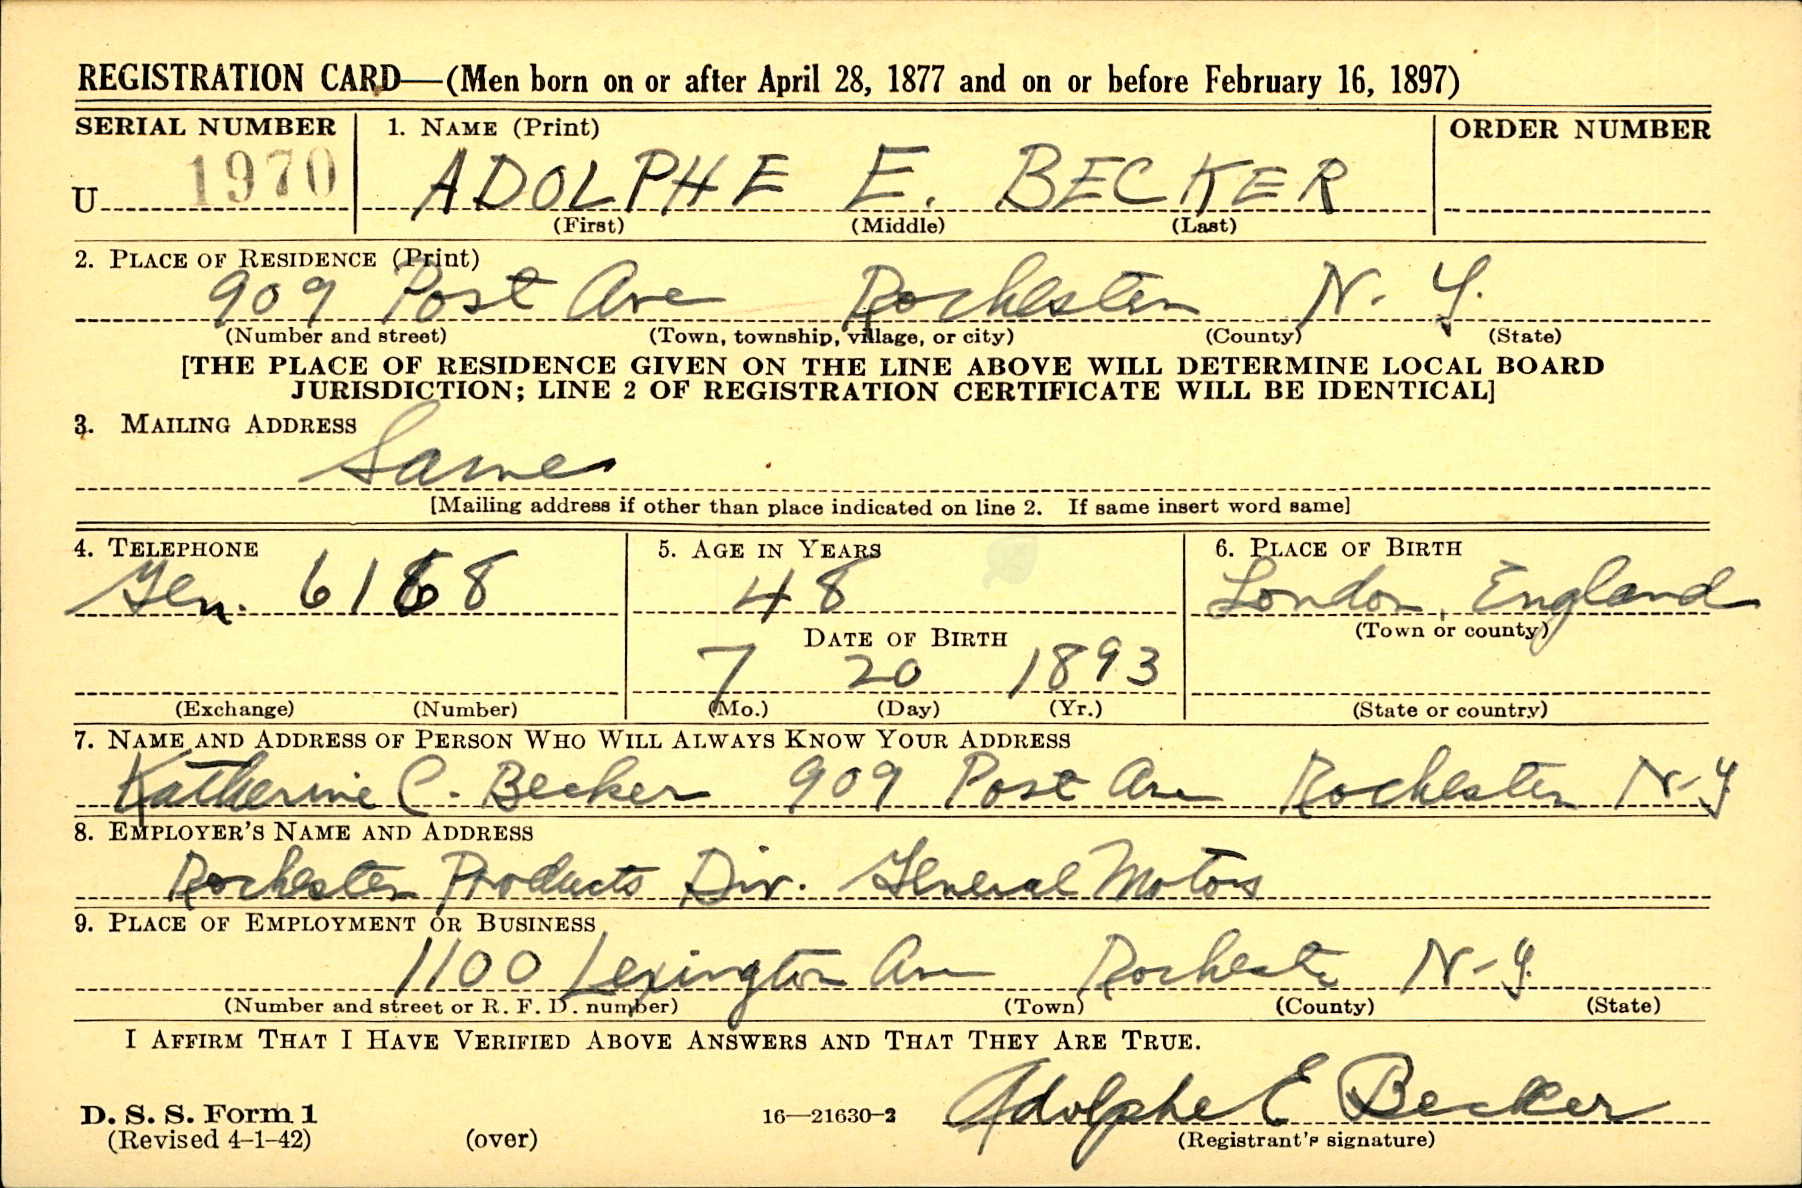 REGISTRATION CARD—(Men born on or after April 28, 1877 and on or before February 16, 1897)
SERIAL NUMBER 1. NAME (Print) ORDER NUMBER
U 1970 ADOLPHE E. BECKER
(First) (Middle) (Last)
2. PLACE OF RESIDENCE (Print)
909 Post Ave Rochester N. Y.
(Number and street) (Town, township, village, or city) (County) (State)
[THE PLACE OF RESIDENCE GIVEN ON THE LINE ABOVE WILL DETERMINE LOCAL BOARD
JURISDICTION; LINE 2 OF REGISTRATION CERTIFICATE WILL BE IDENTICAL]
3. MAILING ADDRESS
Same
[Mailing address if other than place indicated on line 2. If same insert word same]
4. TELEPHONE 5. AGE IN YEARS 6. PLACE OF BIRTH
Gen. 6168 48 London, England
DATE OF BIRTH (Town or county)
7 20 1893
(Exchange) (Number) (Mo.) (Day) (Yr.) (State or country)
7. NAME AND ADDRESS OF PERSON WHO WILL ALWAYS KNOW YOUR ADDRESS
Katherine C. Becker 909 Post Ave Rochester N-Y
8. EMPLOYER'S NAME AND ADDRESS
Rochester Products Div. General Motors
9. PLACE OF EMPLOYMENT OR BUSINESS
1100 Lexington Ave Rochester N-Y.
(Number and street or R. F. D. number) (Town) (County) (State)
I AFFIRM THAT I HAVE VERIFIED ABOVE ANSWERS AND THAT THEY ARE TRUE.
Adolphe E Becker
D. S. S. Form 1 16—21630-2
(Revised 4-1-42) (over) (Registrant's signature)